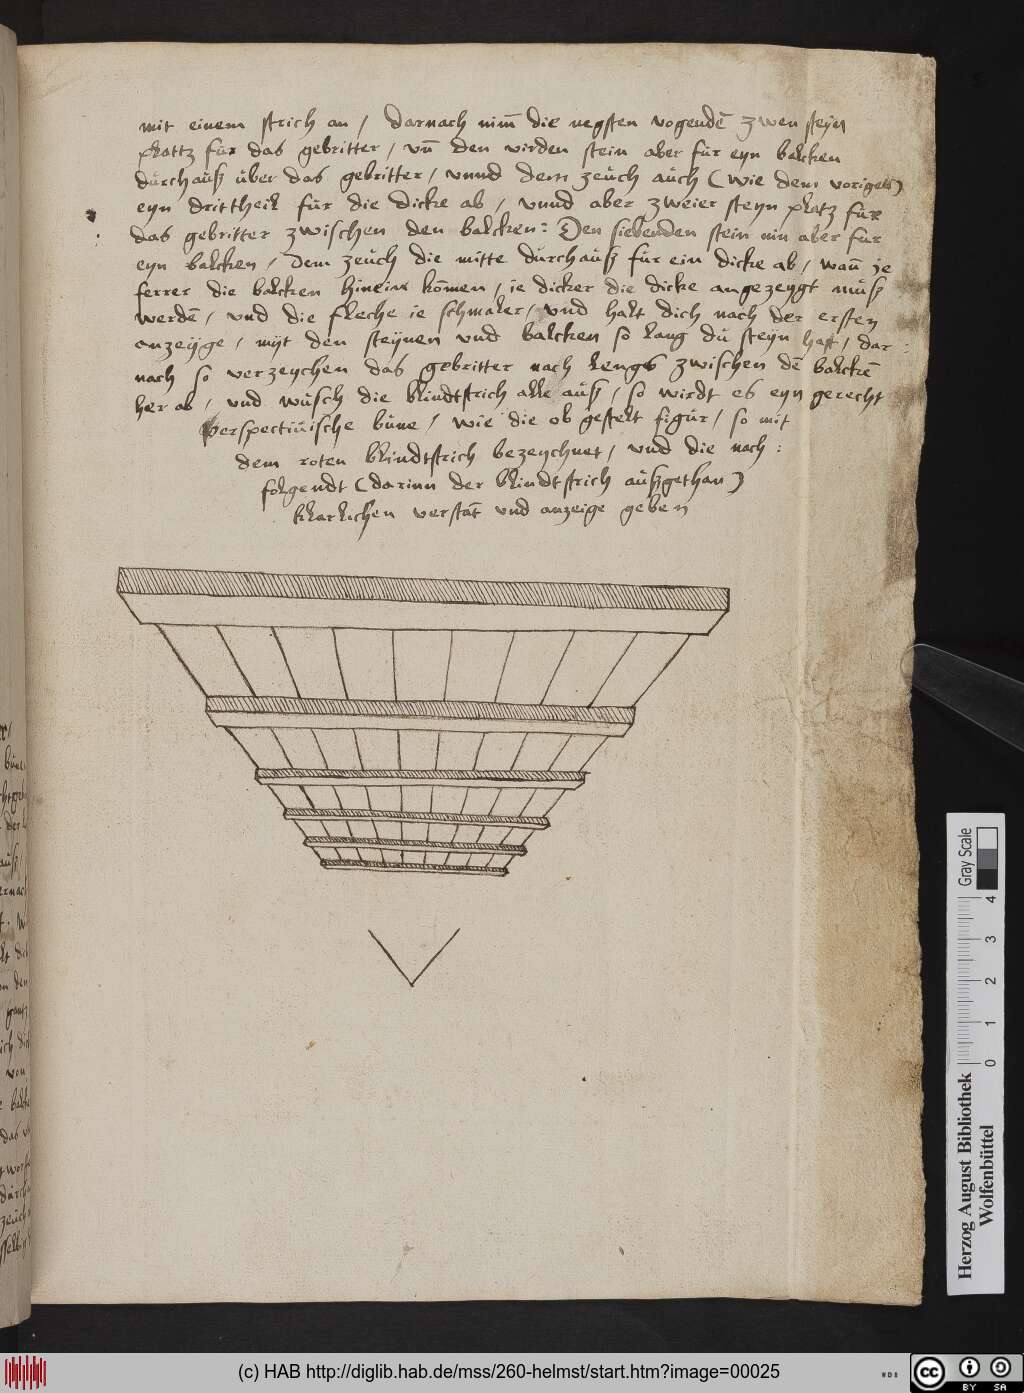 mit einem strich an / darnach nim̄ die negsten vogendē zwen steyn
plattz für das gebritter / vn̄ den virden stein aber für eyn balcken
dürchaüß über das gebritter / vnnd dem zeüch aüch (wie dem vorigen)
eyn drittheil für die dicke ab / vnnd aber zweier steyn platz für
das gebritter zwischen den balcken: Den siebenden stein nin aber für
eyn balcken / dem zeüch die mitte dürchaüß für ein dicke ab / wan̄ ie
ferrer die balcken hinein kōmen / ie dicker die dicke angezeygt müß
werdē / vnd die fleche ie schmaler / vnd halt dich nach der ersten
anzeijge / mijt den steijnen vnd balcken so lang dü steijn hast / dar:
nach so verzeychen das gebritter nach lengs zwischen dē balckē
her ab / vnd wüsch die blindtstrich alle aüß / so wirdt es eyn gerecht
perspectiüische büne / wie die ob gestelt figür / so mit
dem roten blindtstrich bezeychnet / vnd die nach:
folgendt (darinn der blindtstrich aüßgethan)
klarlichen verstāt vnd anzeige geben
büne
der
Gray Scale
4
3
2
1
0
Herzog August Bibliothek
Wolfenbüttel
(c) HAB http://diglib.hab.de/mss/260-helmst/start.htm?image=00025
WDB
cc
BY SA